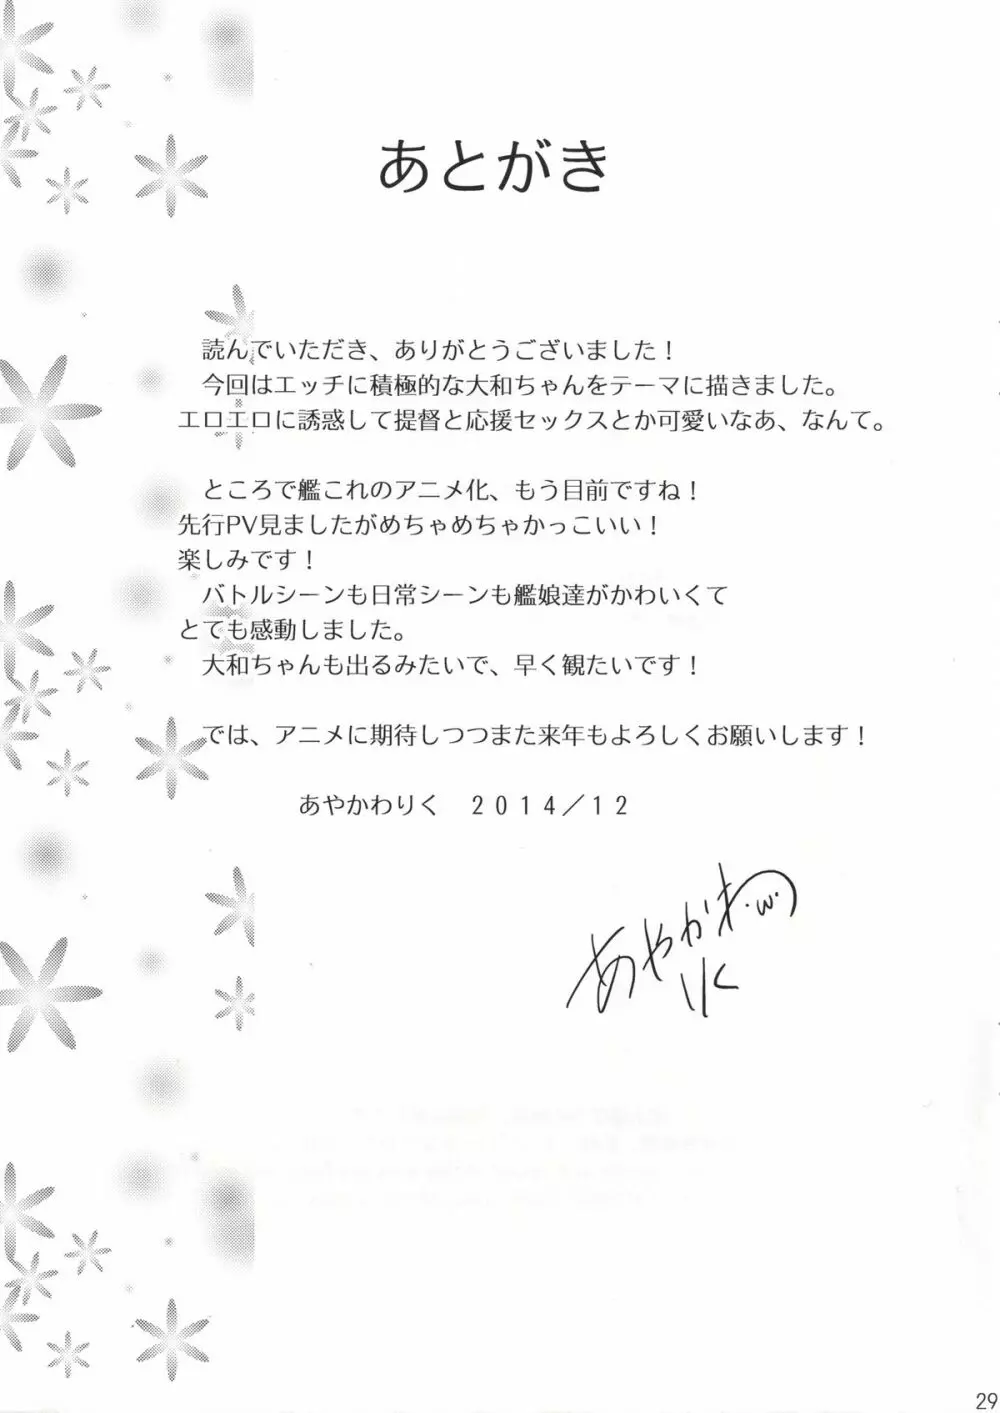 あとがき
読んでいただき、ありがとうございました！
今回はエッチに積極的な大和ちゃんをテーマに描きました。
エロエロに誘惑して提督と応援セックスとか可愛いなあ、なんて。
ところで艦これのアニメ化、もう目前ですね！
先行PV見ましたがめちゃめちゃかっこいい！
楽しみです！
バトルシーンも日常シーンも艦娘達がかわいくて
とても感動しました。
大和ちゃんも出るみたいで、早く観たいです！
では、アニメに期待しつつまた来年もよろしくお願いします！
あやかわりく　２０１４／１２
あやかわ
りく
29